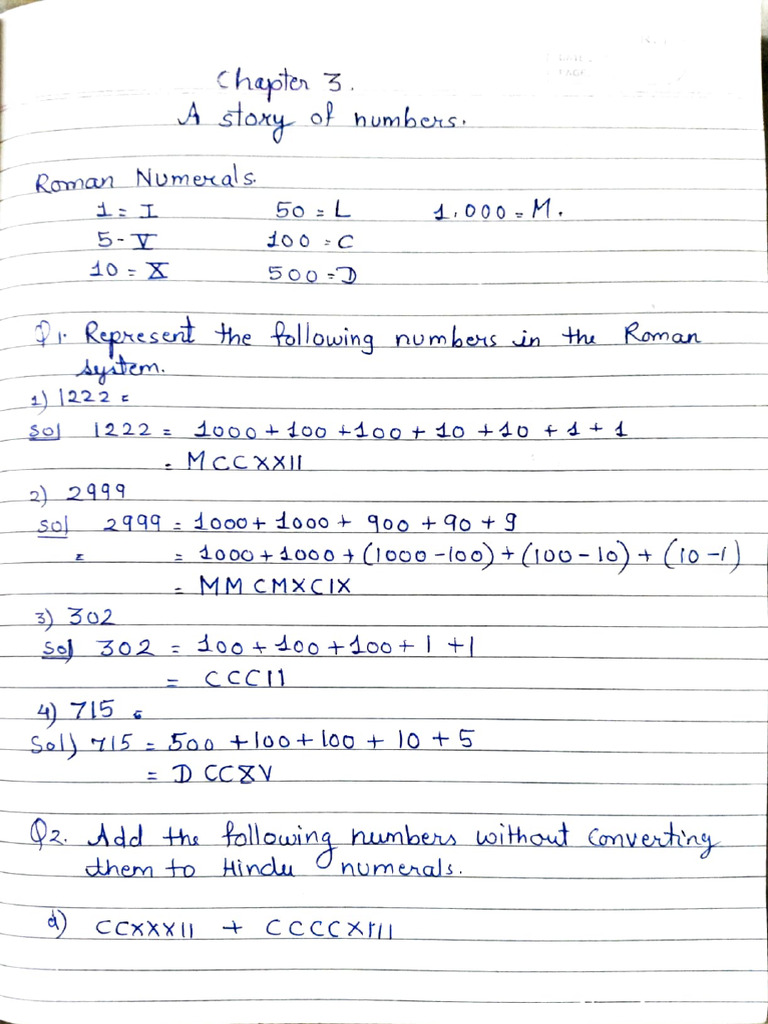 Chapter 3.
A story of numbers.
Roman Numerals.
1 = I 50 = L 1,000 = M.
5 - V 100 = C
10 = X 500 = D
Q1. Represent the following numbers in the Roman
system.
1) 1222 =
Sol 1222 = 1000 + 100 + 100 + 10 + 10 + 1 + 1
= MCCXXII
2) 2999
Sol 2999 = 1000 + 1000 + 900 + 90 + 9
= = 1000 + 1000 + (1000 - 100) + (100 - 10) + (10 - 1)
= MMCMXCIX
3) 302
Sol 302 = 100 + 100 + 100 + 1 + 1
= CCCII
4) 715 =
Sol) 715 = 500 + 100 + 100 + 10 + 5
= DCCXV
Q2. Add the following numbers without converting
them to Hindu numerals.
a) CCXXXII + CCCCXIII